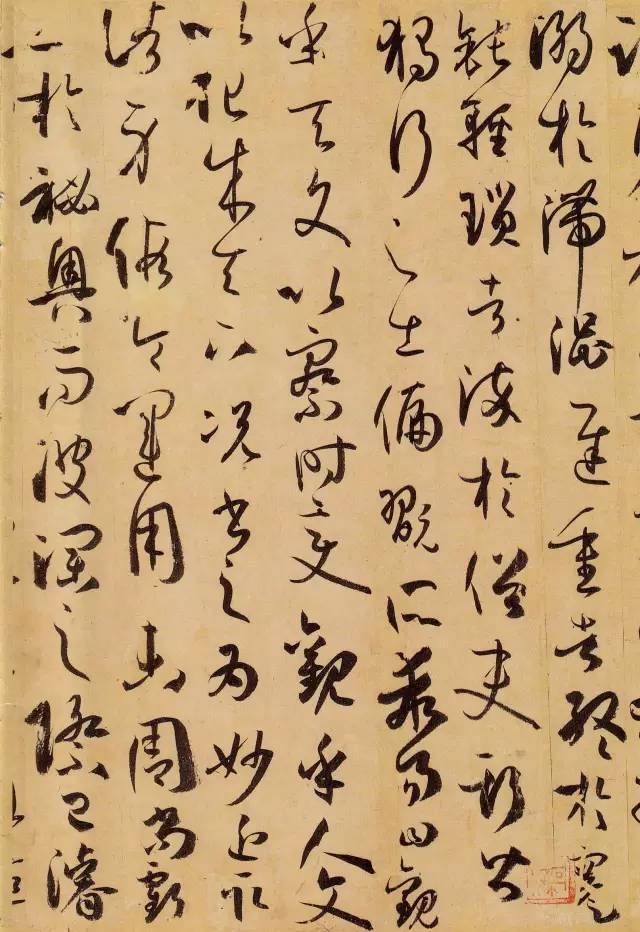 溺於滯澀遲重者終於蹇
鈍輕瑣者染於俗吏斯皆
獨行之士偏翫所乖易曰觀
乎天文以察時變觀乎人文
以化成天下況書之為妙近取
諸身假令運用未周尚虧
工於秘奧而波瀾之際已濬